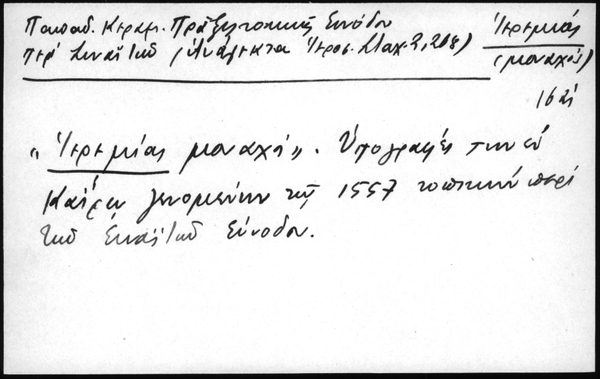 Παπαδ. Κεραμ. Πράξις τοπικῆς Συνόδου
περὶ Σιναΐτῶν (Ἀνάλεκτα Ἱεροσ. Σταχ. 2, 218)
Ἱερεμίας
(μοναχός)
16 αἰ
"Ἱερεμίας μοναχός". Ὑπογραφές την ἐν
Καΐρῳ γενομένην τῷ 1557 τοπικήν περί
τῶν Σιναϊτῶν Σύνοδον.